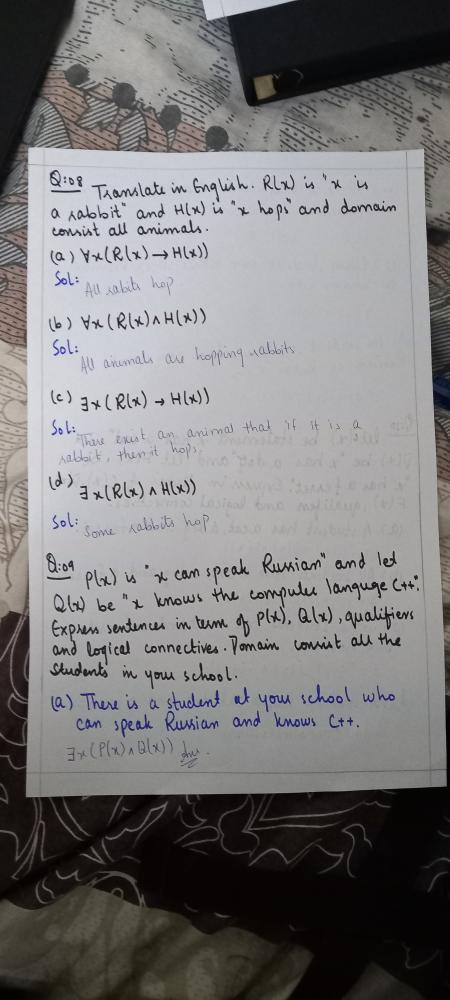 Q:08 Translate in English. R(x) is "x is
a rabbit" and H(x) is "x hops" and domain
consist all animals.
(a) ∀x(R(x) → H(x))
Sol:
All rabits hop
(b) ∀x(R(x) ∧ H(x))
Sol:
All animals are hopping rabbits
(c) ∃x(R(x) → H(x))
Sol: There exist an animal that if it is a
rabbit, then it hops
(d) ∃x(R(x) ∧ H(x))
Sol: Some rabbits hop
Q:09 P(x) is "x can speak Russian" and let
Q(x) be "x knows the computer languge C++".
Express sentences in term of P(x), Q(x), qualifiers
and logical connectives. Domain consist all the
students in your school.
(a) There is a student at your school who
can speak Russian and knows C++.
∃x(P(x) ∧ Q(x)) Ans.